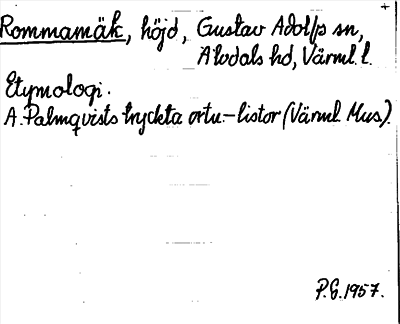 Rommamäk, höjd, Gustav Adolfs sn,
Älvdals hd, Värml. l.
Etymologi.
A. Palmqvists tryckta ortn.-listor (Värml. Mus).
P.G. 1957.